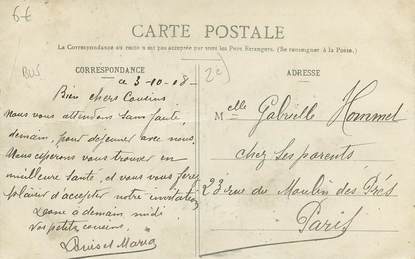 6€
CARTE POSTALE
La Correspondance au recto n'est pas acceptée par tous les Pays Étrangers. (Se renseigner à la Poste.)
BUS
CORRESPONDANCE
2c)
ADRESSE
a 3-10-08
Bien chers Cousins
Nous vous attendons sans faute,
demain, pour dejeuner avec nous.
Nous esperons vous trouver en
meilleure santé, et vous nous ferez
plaisir d'accepter notre invitation
Donc a demain midi
Vos petits cousins.
Louis et Maria
Melle Gabrielle Hommel
chez ses parents
23 rue du Moulin des Prés
Paris